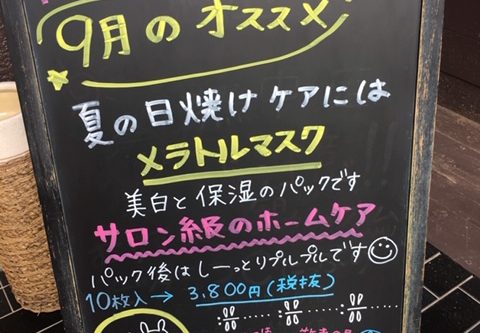 9月のオススメ
夏の日焼けケアには
メラトルマスク
美白と保湿のパックです
サロン級のホームケア
パック後はしーっとりプルプルです
10枚入→ 3,800円(税抜)